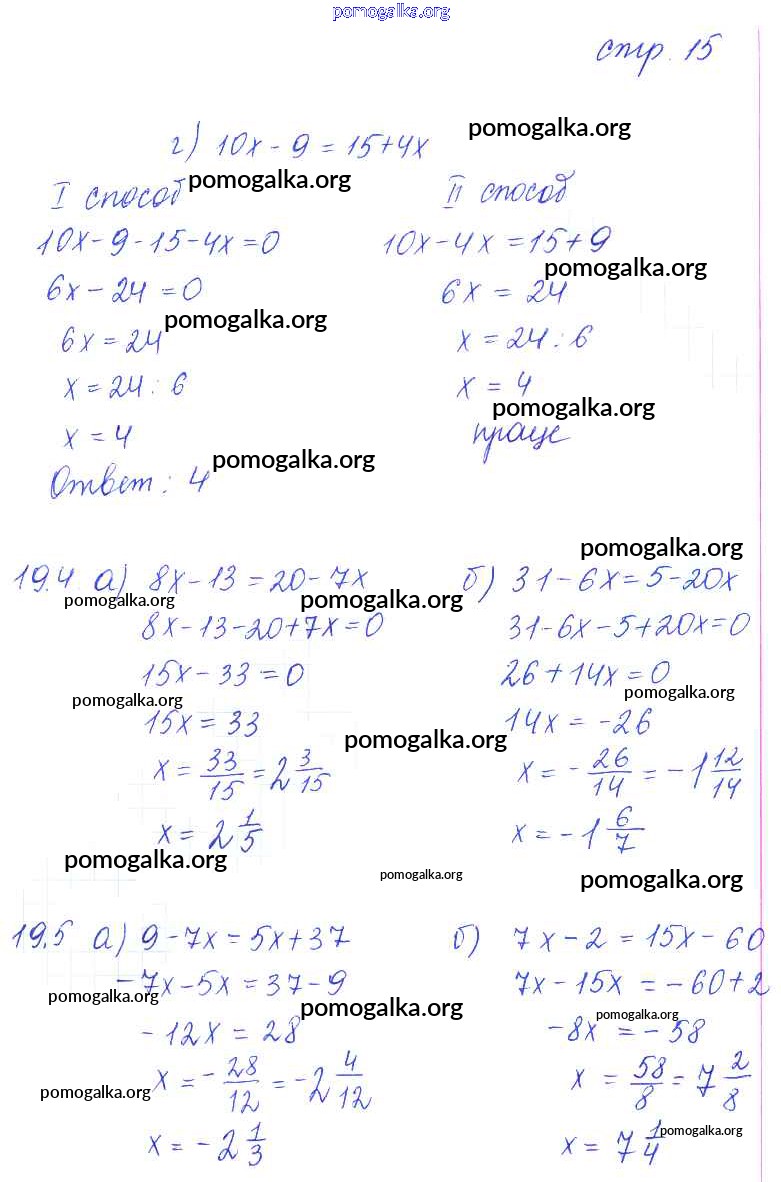 pomogalka.org
стр. 15
г) 10x - 9 = 15 + 4x
pomogalka.org
I способ pomogalka.org
10x - 9 - 15 - 4x = 0
6x - 24 = 0
pomogalka.org
6x = 24
x = 24 : 6
x = 4
Ответ: 4
pomogalka.org
II способ
10x - 4x = 15 + 9
pomogalka.org
6x = 24
x = 24 : 6
x = 4
pomogalka.org
проще
19.4 а) 8x - 13 = 20 - 7x
pomogalka.org pomogalka.org
8x - 13 - 20 + 7x = 0
15x - 33 = 0
pomogalka.org
15x = 33
pomogalka.org
x = 33/15 = 2 3/15
x = 2 1/5
pomogalka.org
pomogalka.org
б) 31 - 6x = 5 - 20x
31 - 6x - 5 + 20x = 0
26 + 14x = 0
pomogalka.org
14x = -26
x = - 26/14 = -1 12/14
x = -1 6/7
pomogalka.org pomogalka.org
19.5 а) 9 - 7x = 5x + 37
-7x - 5x = 37 - 9
pomogalka.org pomogalka.org
-12x = 28
x = - 28/12 = -2 4/12
pomogalka.org
x = -2 1/3
б) 7x - 2 = 15x - 60
7x - 15x = -60 + 2
pomogalka.org
-8x = -58
x = 58/8 = 7 2/8
pomogalka.org
x = 7 1/4